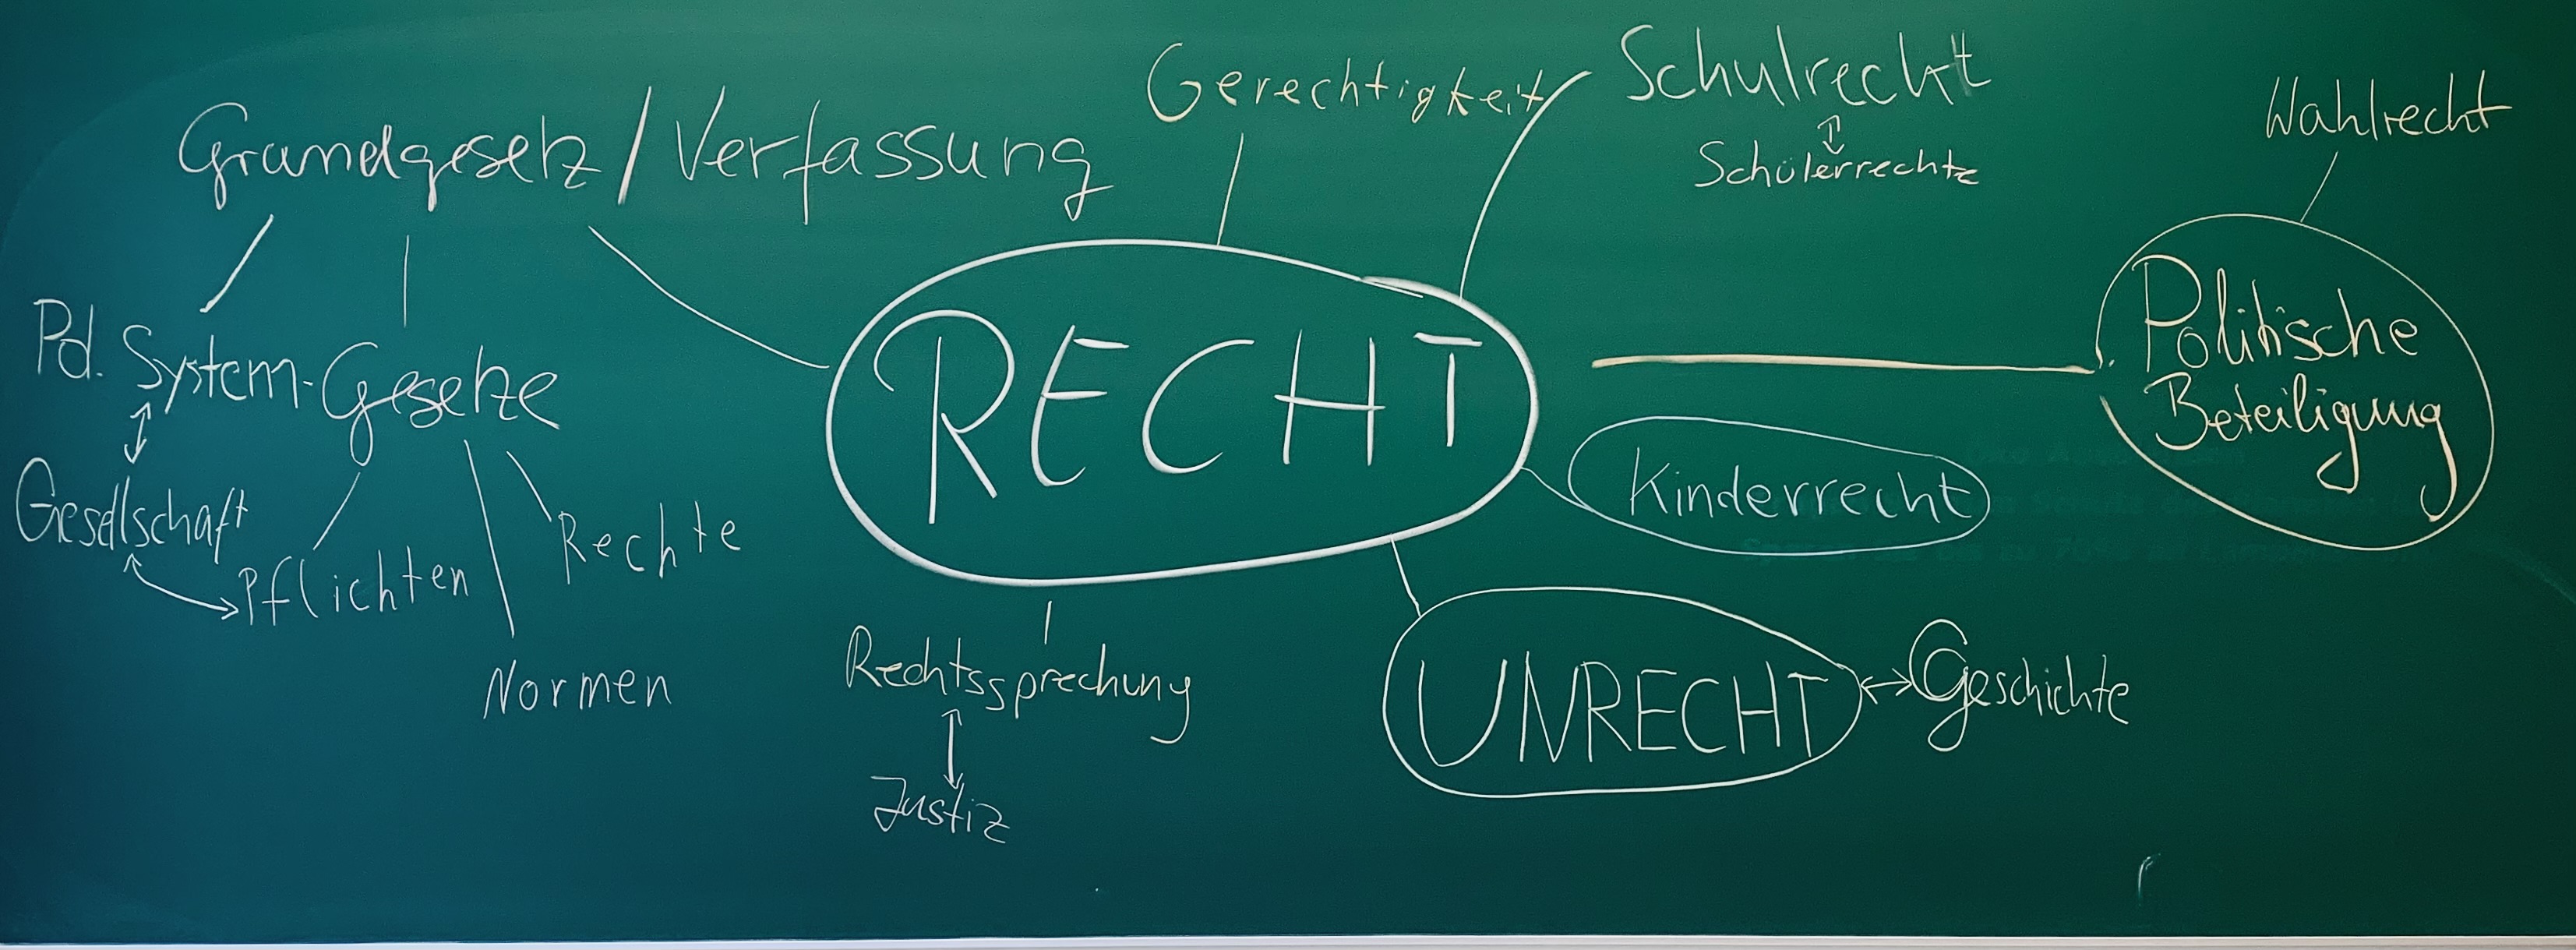 Gerechtigkeit
Schulrecht
Schülerrechte
Wahlrecht
Grundgesetz / Verfassung
Pol. System - Gesetze
Gesellschaft
Pflichten
Rechte
Normen
RECHT
Politische
Beteiligung
Kinderrecht
Rechtssprechung
Justiz
UNRECHT
Geschichte